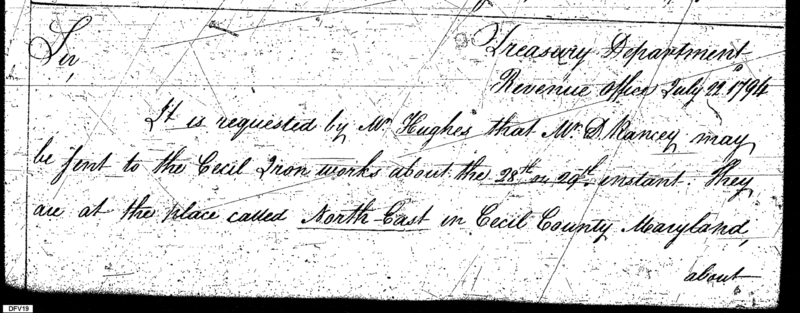 Treasury Department
Sir,
Revenue Office July 22d 1794
It is requested by Mr. Hughes that Mr. D. Rancey may
be sent to the Cecil Iron works about the 28th or 29th instant. They
are at the place called North East in Cecil County Maryland,
about
DFV19